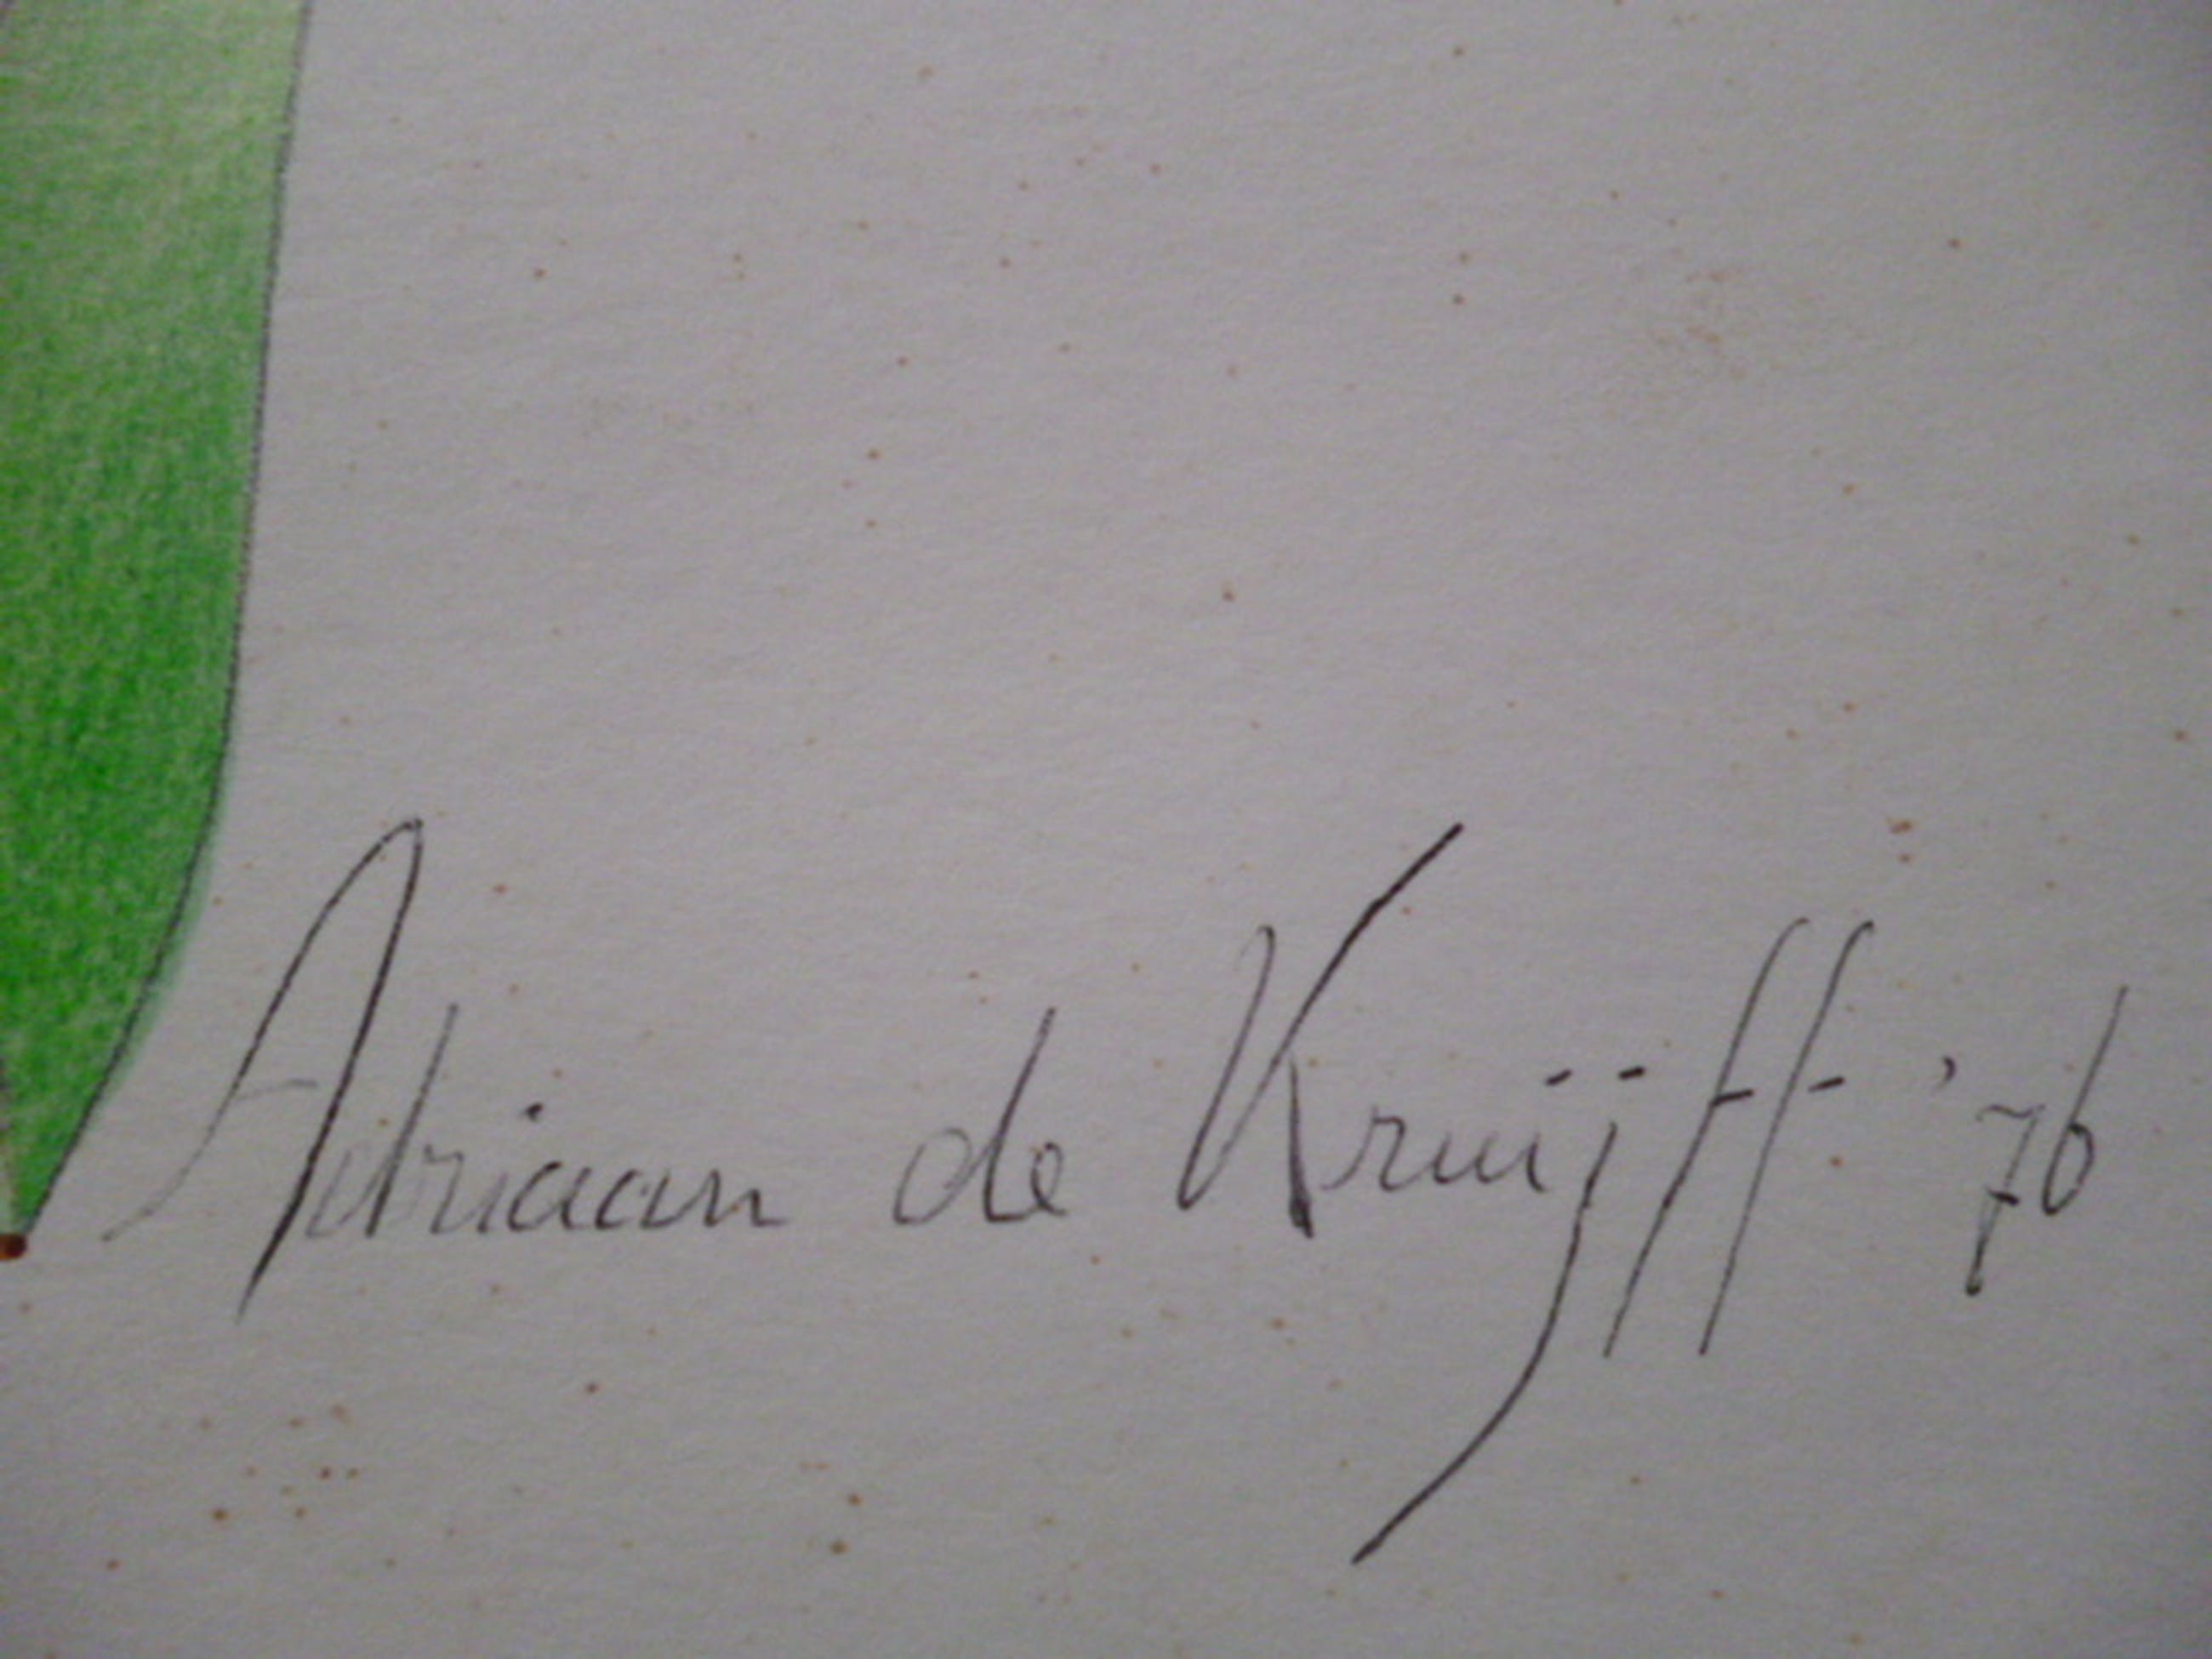 Adriaan de Kruijff '76